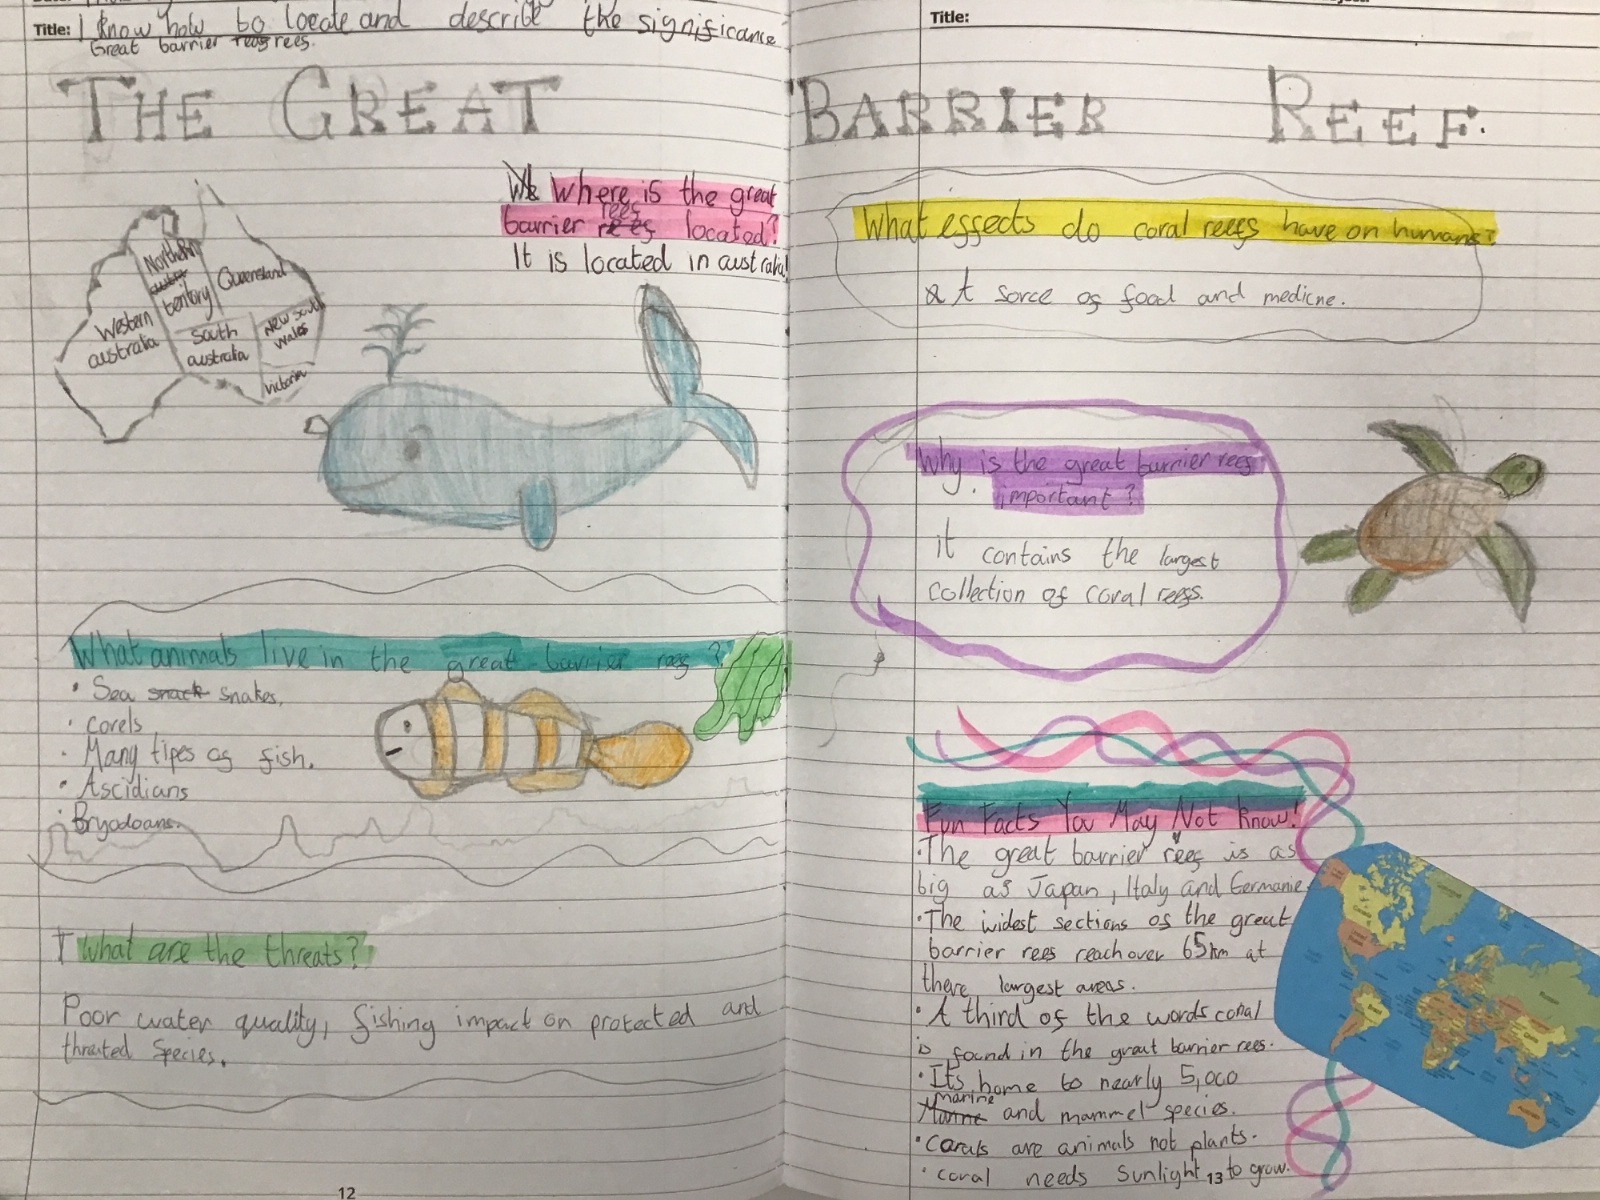 Title: I know how to locate and describe the significance
Great barrier reefs rees.
THE GREAT BARRIER REEF.
Where is the great
barrier rees located?
It is located in australia!
Northern
territory
Queensland
Western
australia
South
australia
New south
wales
Victoria
What animals live in the great barrier rees?
• Sea snack snakes.
• corels
• Many tipes of fish.
• Ascidians
• Bryodoans.
T What are the threats?
Poor water quality, fishing impact on protected and
thrented species.
12
Title:
What effects do coral reefs have on humans?
A sorce of food and medicne.
Why is the great barrier rees
important?
it contains the largest
collection of coral reefs.
Fun Facts You May Not Know!
• The great barrier reef is as
big as Japan, Italy and Germanie
• The widest sections of the great
barrier rees reach over 65km at
there largest areas.
• A third of the words coral
is found in the great barrier rees.
• Its home to nearly 5,000
marine
Marine and mammel species.
• Corals are animals not plants.
• coral needs Sunlight to grow.
13